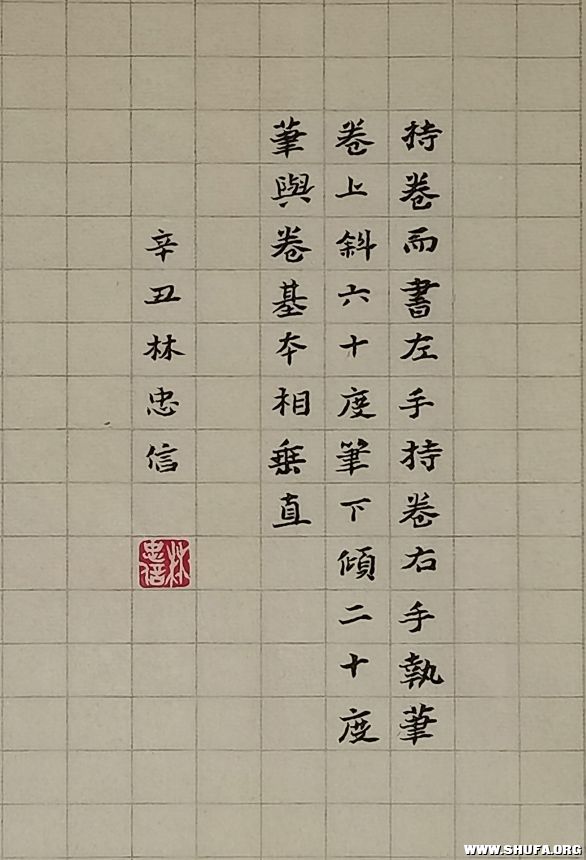 持卷而書左手持卷右手執筆
卷上斜六十度筆下傾二十度
筆與卷基本相垂直
辛丑林忠信
林忠信
WWW.SHUFA.ORG